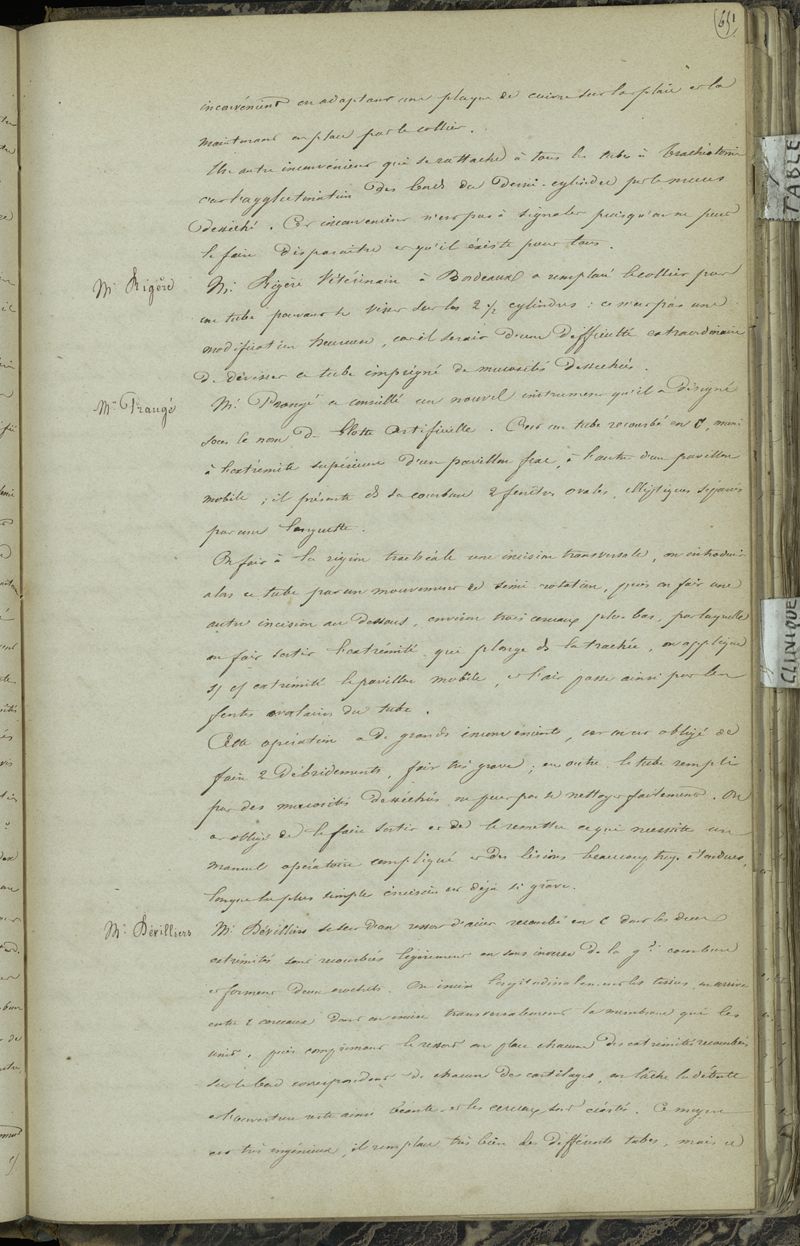 651
inconvénient en adaptant une plaque de cuivre sur la plaie et la
maintenant en place par le collier.
Un autre inconvénient qui se rattache à tous les tubes à trachéotomie
c'est l'agglutination des bords du demi-cylindre par le mucus
desséché. Cet inconvénient n'est pas à signaler puisqu'on ne peut
le faire disparaître et qu'il existe pour tous.
Mr Rigère
Mr Rigère Vétérinaire à Bordeaux a remplacé le collier par
un tube pouvant se visser sur les 2 ½ cylindres : ce n'est pas une
modification heureuse, car il serait d'une difficulté extraordinaire
de dévisser ce tube imprégné de mucosités desséchées.
Mr Prangé
Mr Prangé a conseillé un nouvel instrument qu'il a désigné
sous le nom de Glotte artificielle. C'est un tube recourbé en C, muni
à l'extrémité supérieure d'un pavillon fixe, à l'autre d'un pavillon
mobile ; il présente ds sa courbure 2 fenêtres ovales, elliptiques séparées
par une languette.
On fait à la région trachéale une incision transversale, on introduit
alors ce tube par un mouvement de semi-rotation, puis on fait une
autre incision au dessous, environ trois cerceaux plus bas, par laquelle
on fait sortir l'extrémité qui plonge ds la trachée, on applique
extrémité le pavillon mobile, et l'air passe ainsi par les
fentes ovalaires du tube.
Cette opération a de grands inconvénients, car on est obligé de
faire 2 débridements, fait très grave ; en outre le tube rempli
par des mucosités desséchées ne peut pas se nettoyer facilement. On
est obligé de le faire sortir et de le remettre ce qui nécessite un
manuel opératoire compliqué et des lésions beaucoup trop étendues,
lorsque la plus simple incision est déjà si grave.
Mr Dévilliers
Mr Dévilliers se sert d'un ressort d'acier recourbé en C dont les deux
extrémités sont recourbées légèrement en sens inverse de la gde courbure
et forment deux crochets. On incise longitudinalement les tissus, on arrive
entre 2 cerceaux dont on incise transversalement la membrane qui les
unit, puis comprimant le ressort on place chacune des extrémités recourbées
sur le bord correspondant de chacun des cartilages, on lâche la détente
et l'ouverture reste ainsi béante et les cerceaux sont écartés. Ce moyen
est très ingénieux, il remplace très bien les différents tubes, mais il
TABLE
CLINIQUE